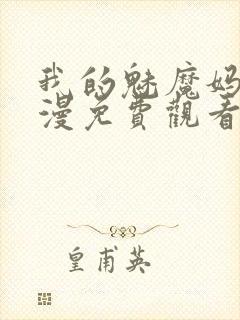 我的魅魔妈
漫免費觀看
皇甫英